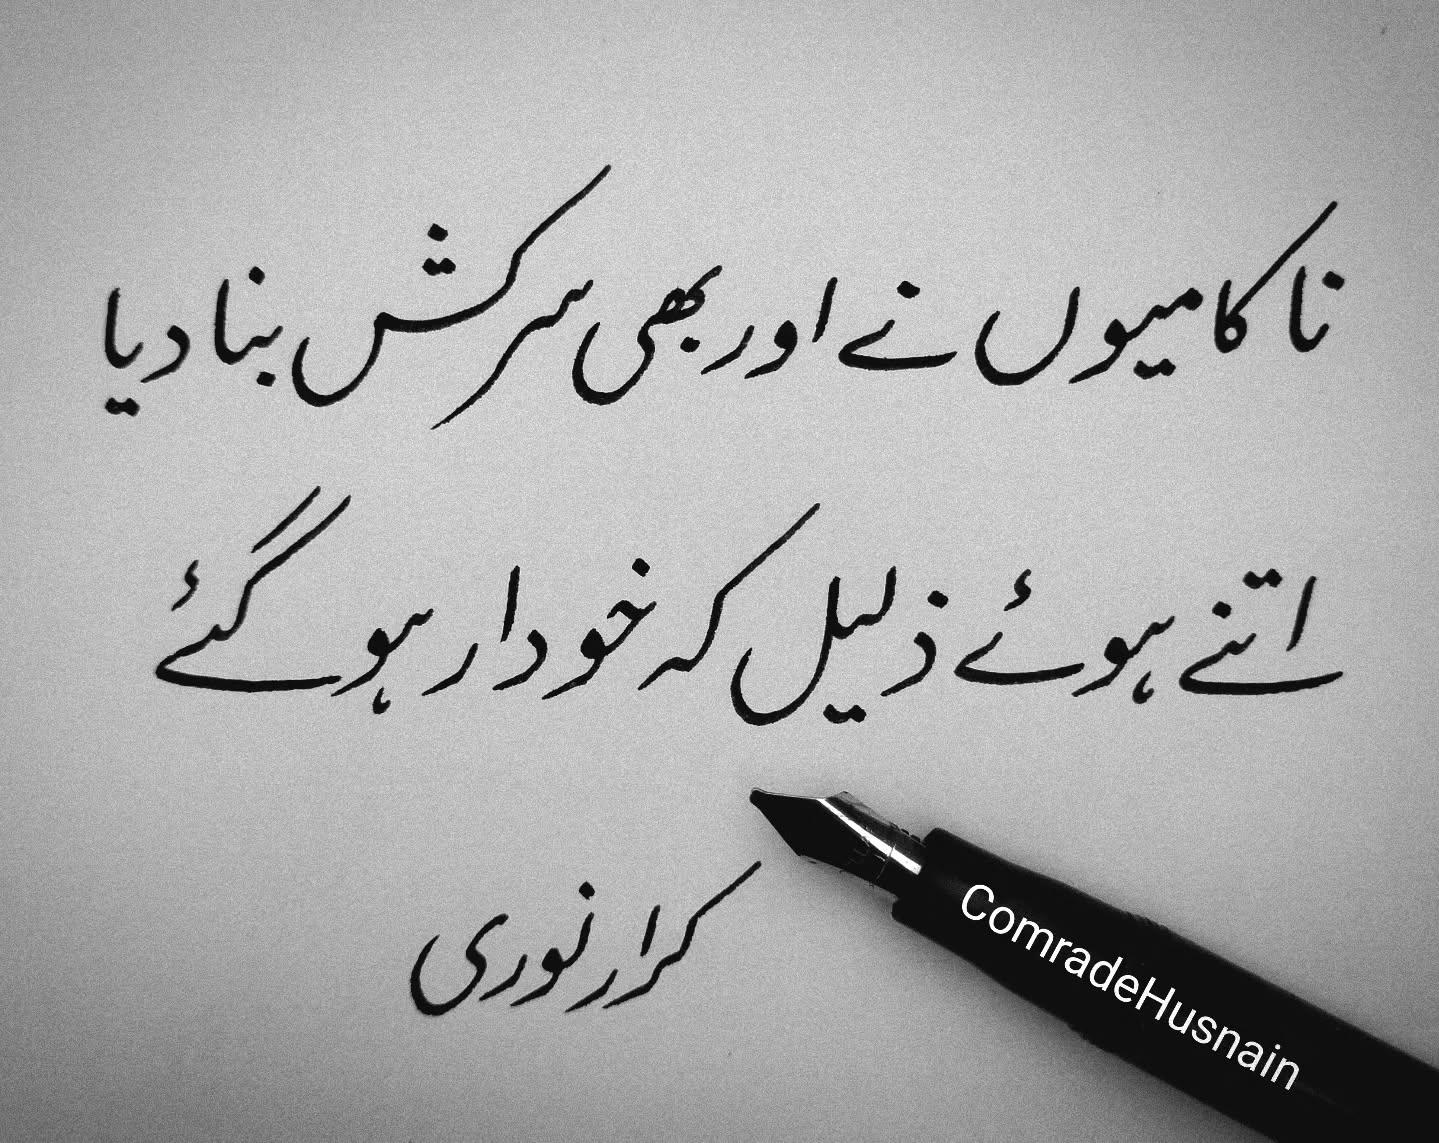 ناکامیوں نے اور بھی سرکش بنا دیا
اتنے ہوئے ذلیل کہ خوددار ہو گئے
کرار نوری
ComradeHusnain